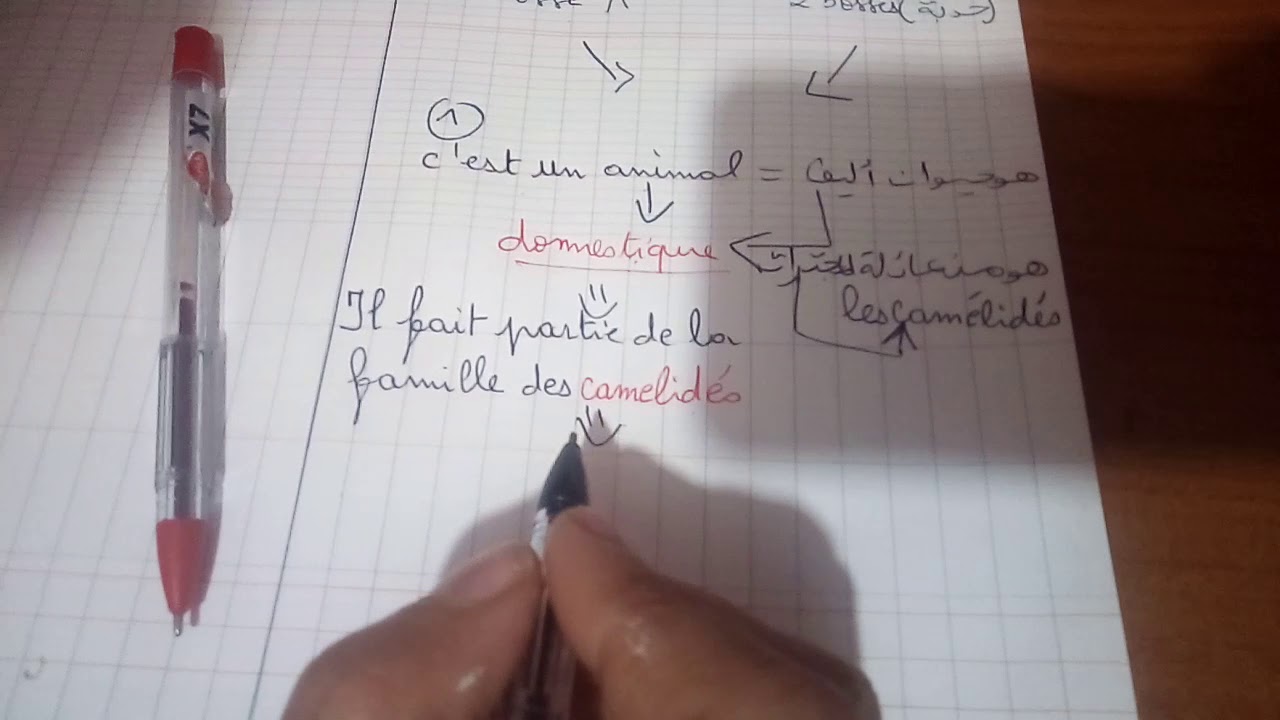 2 bosses (حدبة)
①
c'est un animal = هو حيوان أليف
domestique
هو من عائلة
les camélidés
Il fait partie de la
famille des camelidés
X7